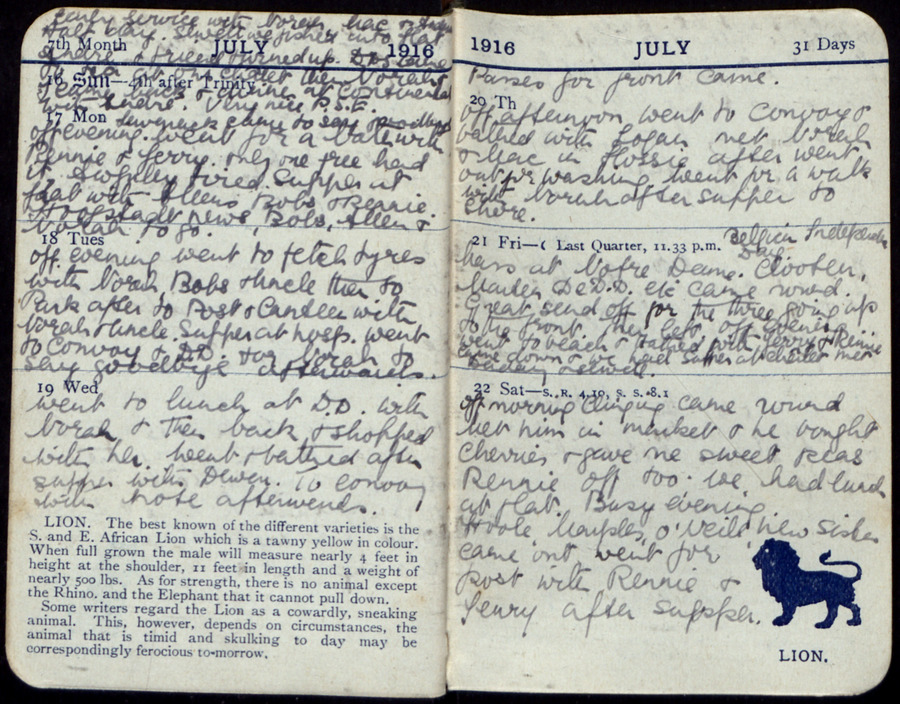 early service with Norah, Mac &
Half day. Sewell we fisher into flat
7th Month JULY 1916
Andre & friend turned up.
16 Sun—4th after Trinity.
came back & dinner at Continental
with Andre. Very nice P.S.E.
17 Mon came to say goodbye
off evening. went for a bathe with
Rennie & Jerry. only one free had
it. Awfully tired. Supper at
flat with Allens Bobs & Rennie.
Hoogstadt news, Bobs, Allen &
Norah to go.
18 Tues
off evening went to fetch tyres
with Norah Bobs & Uncle then to
Park after to Post & Canteen with
Norah & Uncle. Supper at hosp. went
to Convoy & D.D. for Norah to
say goodbye afterwards.
19 Wed
went to lunch at D.D. with
Norah & then back & shopped
with her. went & bathed after
supper with Dewey. To convoy
with afterwards.
LION. The best known of the different varieties is the
S. and E. African Lion which is a tawny yellow in colour.
When full grown the male will measure nearly 4 feet in
height at the shoulder, 11 feet in length and a weight of
nearly 500 lbs. As for strength, there is no animal except
the Rhino. and the Elephant that it cannot pull down.
Some writers regard the Lion as a cowardly, sneaking
animal. This, however, depends on circumstances, the
animal that is timid and skulking to day may be
correspondingly ferocious to-morrow.
1916 JULY 31 Days
Passes for front came.
20 Th
off afternoon went to Convoy &
bathed with Logan. met Norah
& Mac in Flossie after went
out for washing. Went for a walk
with Norah after supper to
shore.
21 Fri—☾ Last Quarter, 11.33 p.m. Belgian Independence
Day
Mass at Notre Dame. Clooten,
De D.D. etc came round.
Great send off for the three going up
to the front. They left off evening
went to beach & bathed with Jerry & Rennie
came down & we had supper at chalet met
& Sewell.
22 Sat—S. R. 4.10, S. S. 8.1
off morning Clinging came round
Met him in market & he bought
cherries & gave me sweet peas
Rennie off too. we had lunch
at flat. Busy evening.
Hoole Marples, O'Neill new Sister
came out went for
post with Rennie &
Jerry after supper.
LION.